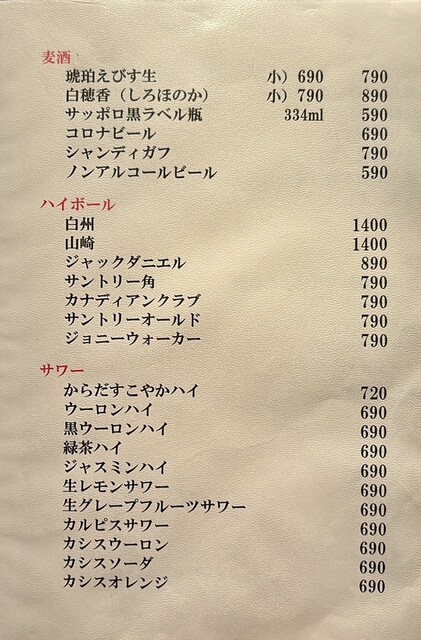 麦酒
琥珀えびす生 小）690 790
白穂香（しろほのか） 小）790 890
サッポロ黒ラベル瓶 334ml 590
コロナビール 690
シャンディガフ 790
ノンアルコールビール 590
ハイボール
白州 1400
山崎 1400
ジャックダニエル 890
サントリー角 790
カナディアンクラブ 790
サントリーオールド 790
ジョニーウォーカー 790
サワー
からだすこやかハイ 720
ウーロンハイ 690
黒ウーロンハイ 690
緑茶ハイ 690
ジャスミンハイ 690
生レモンサワー 690
生グレープフルーツサワー 690
カルピスサワー 690
カシスウーロン 690
カシスソーダ 690
カシスオレンジ 690